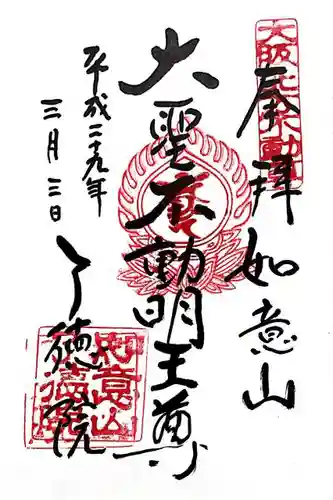 奉拝 如意山
大聖不動明王尊
平成二十九年
三月三日
了徳院
如意山
了徳院